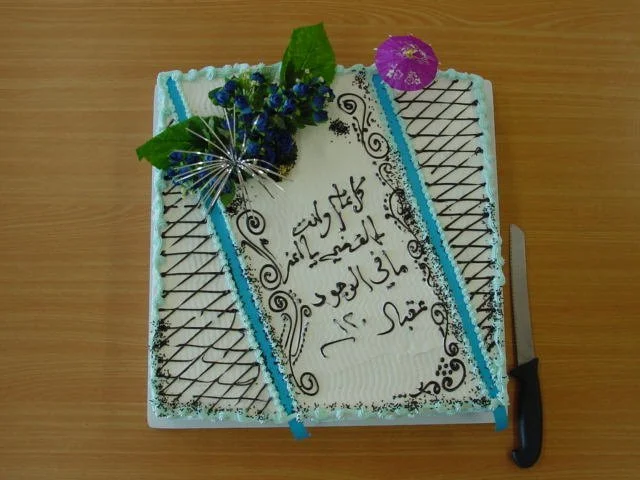 كل عام وانت
يا أعز
ما في الوجود
عقبال ١٢٠